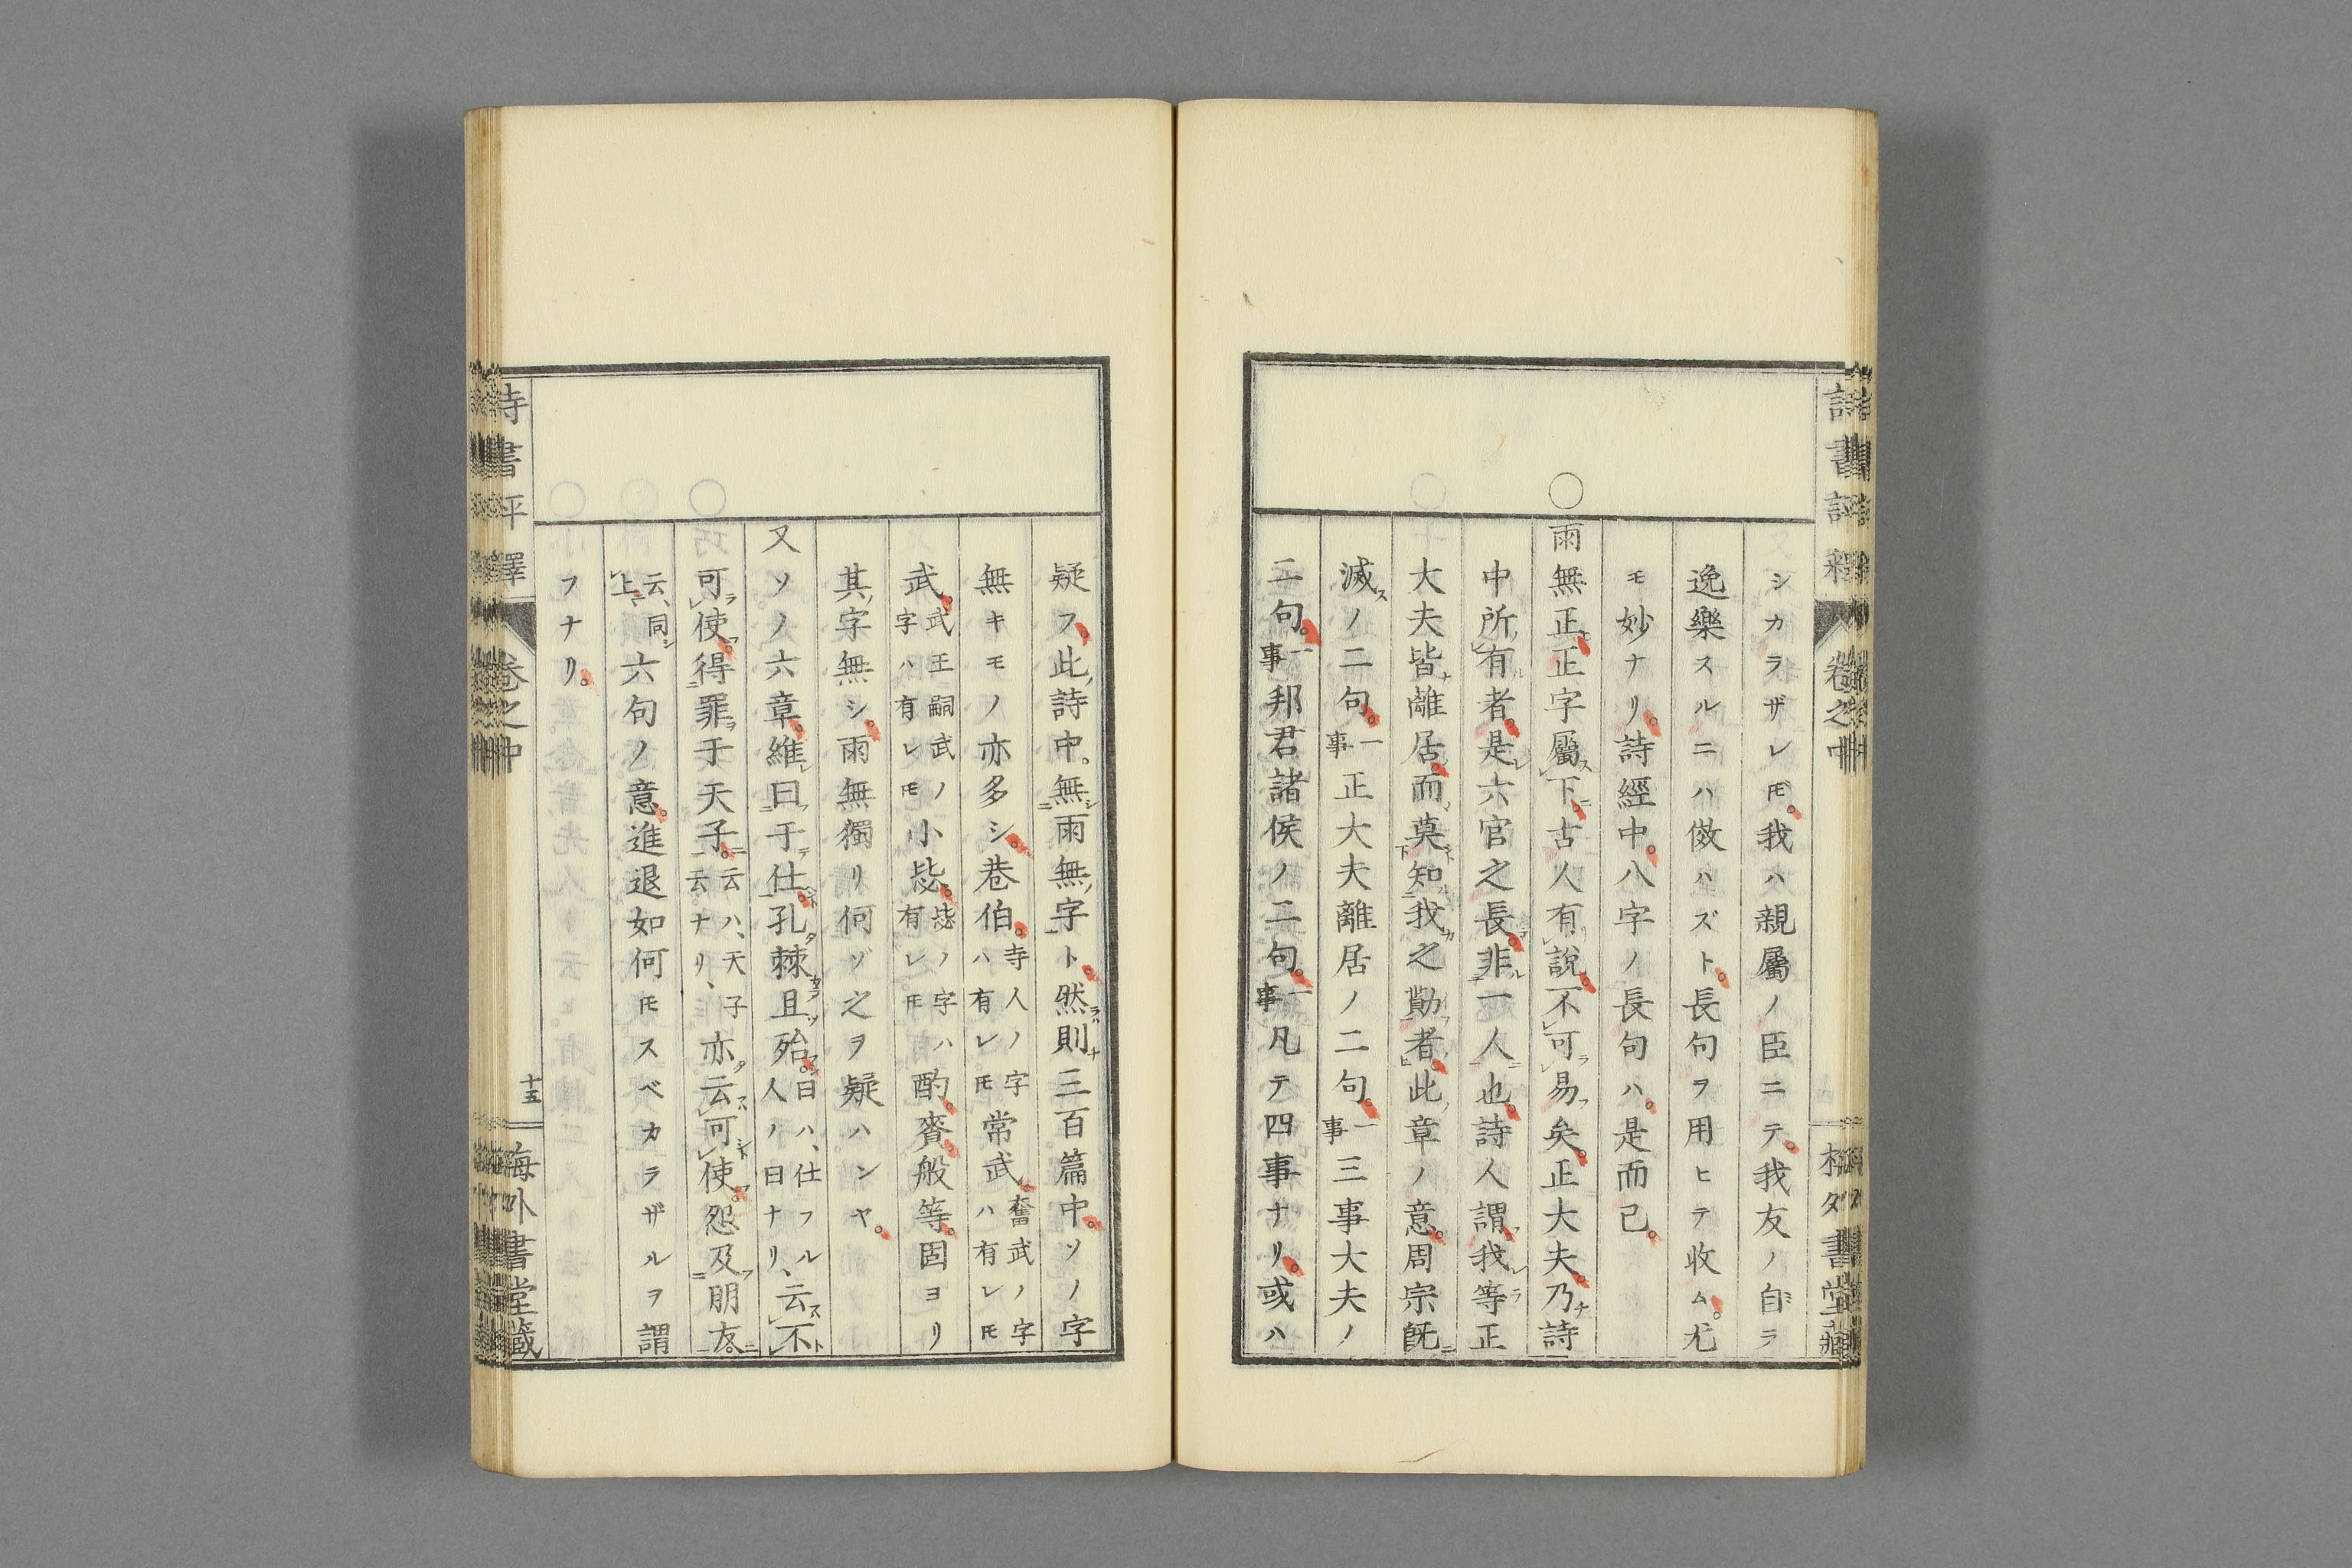 シカラザレ𪜈。我ハ親屬ノ臣ニテ。我友ノ自ミラ
逸樂スルニハ傚ハズト。長句ヲ用ヒテ收ム。尤
モ妙ナリ。詩經中。八字ノ長句ハ。是而已。
雨無正。正字屬下。古人有說。不可易矣。正大夫。乃詩
中所有者。是六官之長。非一人也。詩人謂。我等正
大夫皆離居。而莫知我之勩者。此章ノ意。周宗既
滅ノ二句。一事正大夫離居ノ二句。一事三事大夫ノ
二句。一事邦君諸侯ノ二句。一事凡テ四事ナリ。或ハ
疑フ。此詩中。無雨無字ト。然則三百篇中。ソノ字
無キモノ亦多シ。巷伯。寺人ノ字ハ有レ𪜈常武。奮武ノ字ハ有レ𪜈
武。武王嗣武ノ字ハ有レ𪜈小毖。毖ノ字ハ有レ𪜈酌。賚。般等。固ヨリ
其字無シ。雨無獨リ何ゾ之ヲ疑ハンヤ。
又ソノ六章。維曰于仕。孔棘且殆。曰ハ、仕フル人ノ曰ナリ、云不
可使。得罪于天子。云ハ、天子云ナリ、亦云可使。怨及朋友。
云、同上六句ノ意。進退如何𪜈スベカラザルヲ謂
フナリ。
詩書評釋
卷之中
十五
海外書堂藏